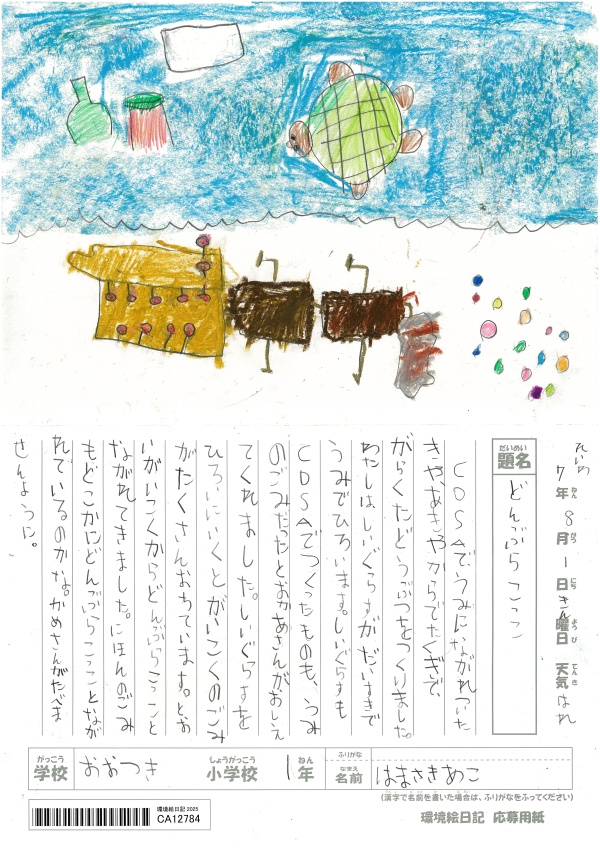 れいわ 7年8月1日 きん曜日 天気 はれ
ねん がつ にち ようび てんき
だいめい
題名
どんぶらこっこ
CDSAでうみにながれついた
きや、あきやからでたくぎで、
がらくたどうぶつをつくりました。
わたしは、しいぐらすがだいすきで
うみでひろいます。しいぐらすも
CDSAでつくったものも、うみ
のごみだったとおかあさんがおしえ
てくれました。しいぐらすを
ひろいにいくとがいこくのごみ
がたくさんおちています。とお
いがいこくからどんぶらこっこと
ながれてきました。にほんのごみ
もどこかにどんぶらこっことなが
れているのかな。かめさんがたべま
せんように。
がっこう
学校
おおつき
しょうがっこう
小学校
1
ねん
年
ふりがな
なまえ
名前
はまさきあこ
(漢字で名前を書いた場合は、ふりがなをふってください)
環境絵日記 応募用紙
環境絵日記 2025
CA12784